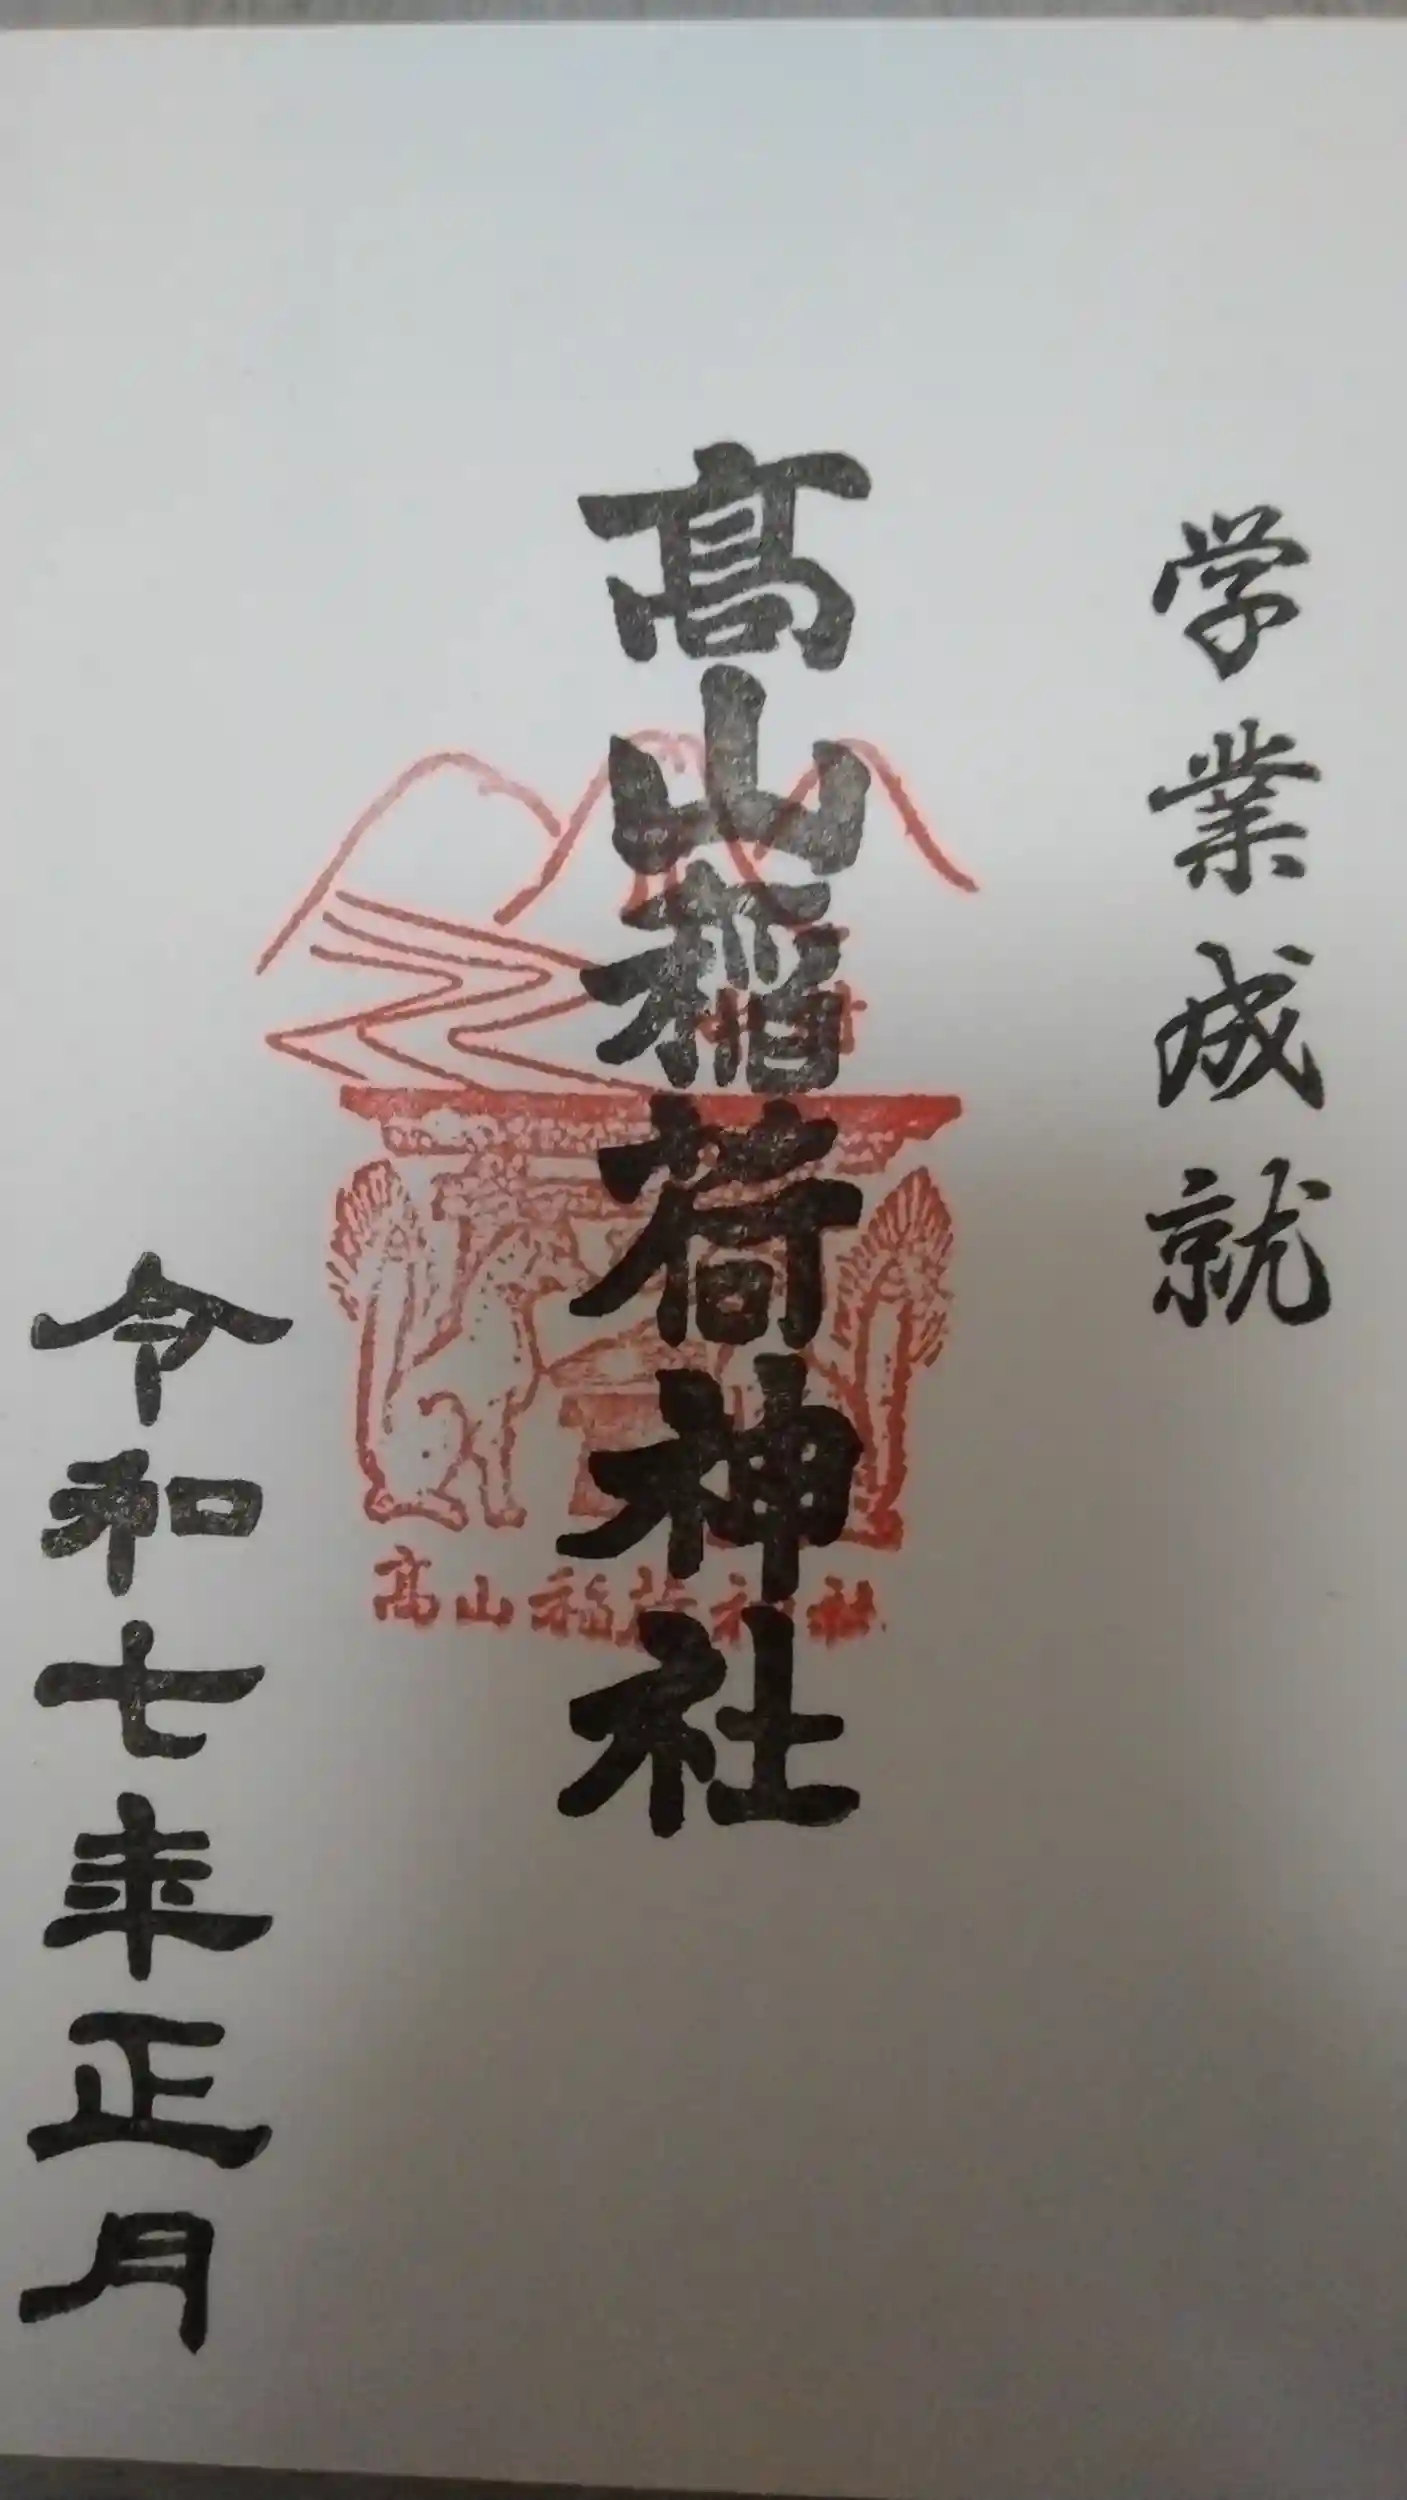 学業成就
髙山稲荷神社
髙山稲荷神社
令和七年正月